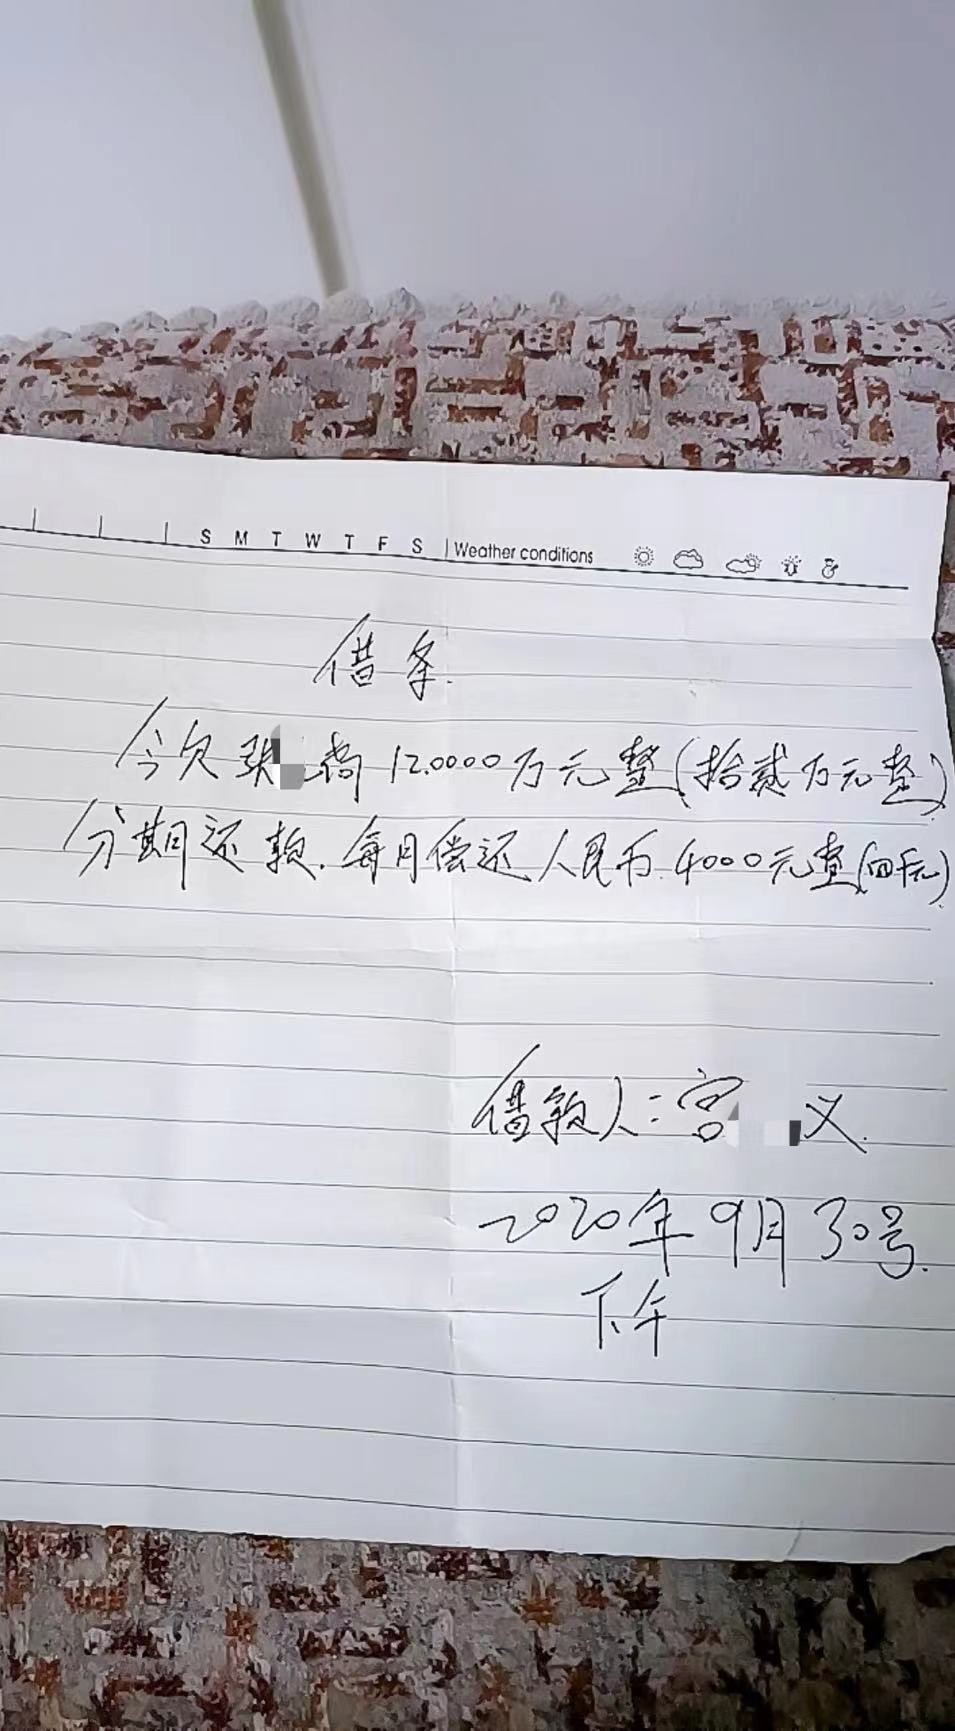 S M T W T F S Weather conditions
借条.
今欠张 12.0000万元整(拾贰万元整)
分期还款.每月偿还人民币.4000元整(四仟元).
借款人:宫 义.
2020年9月30号.
下午